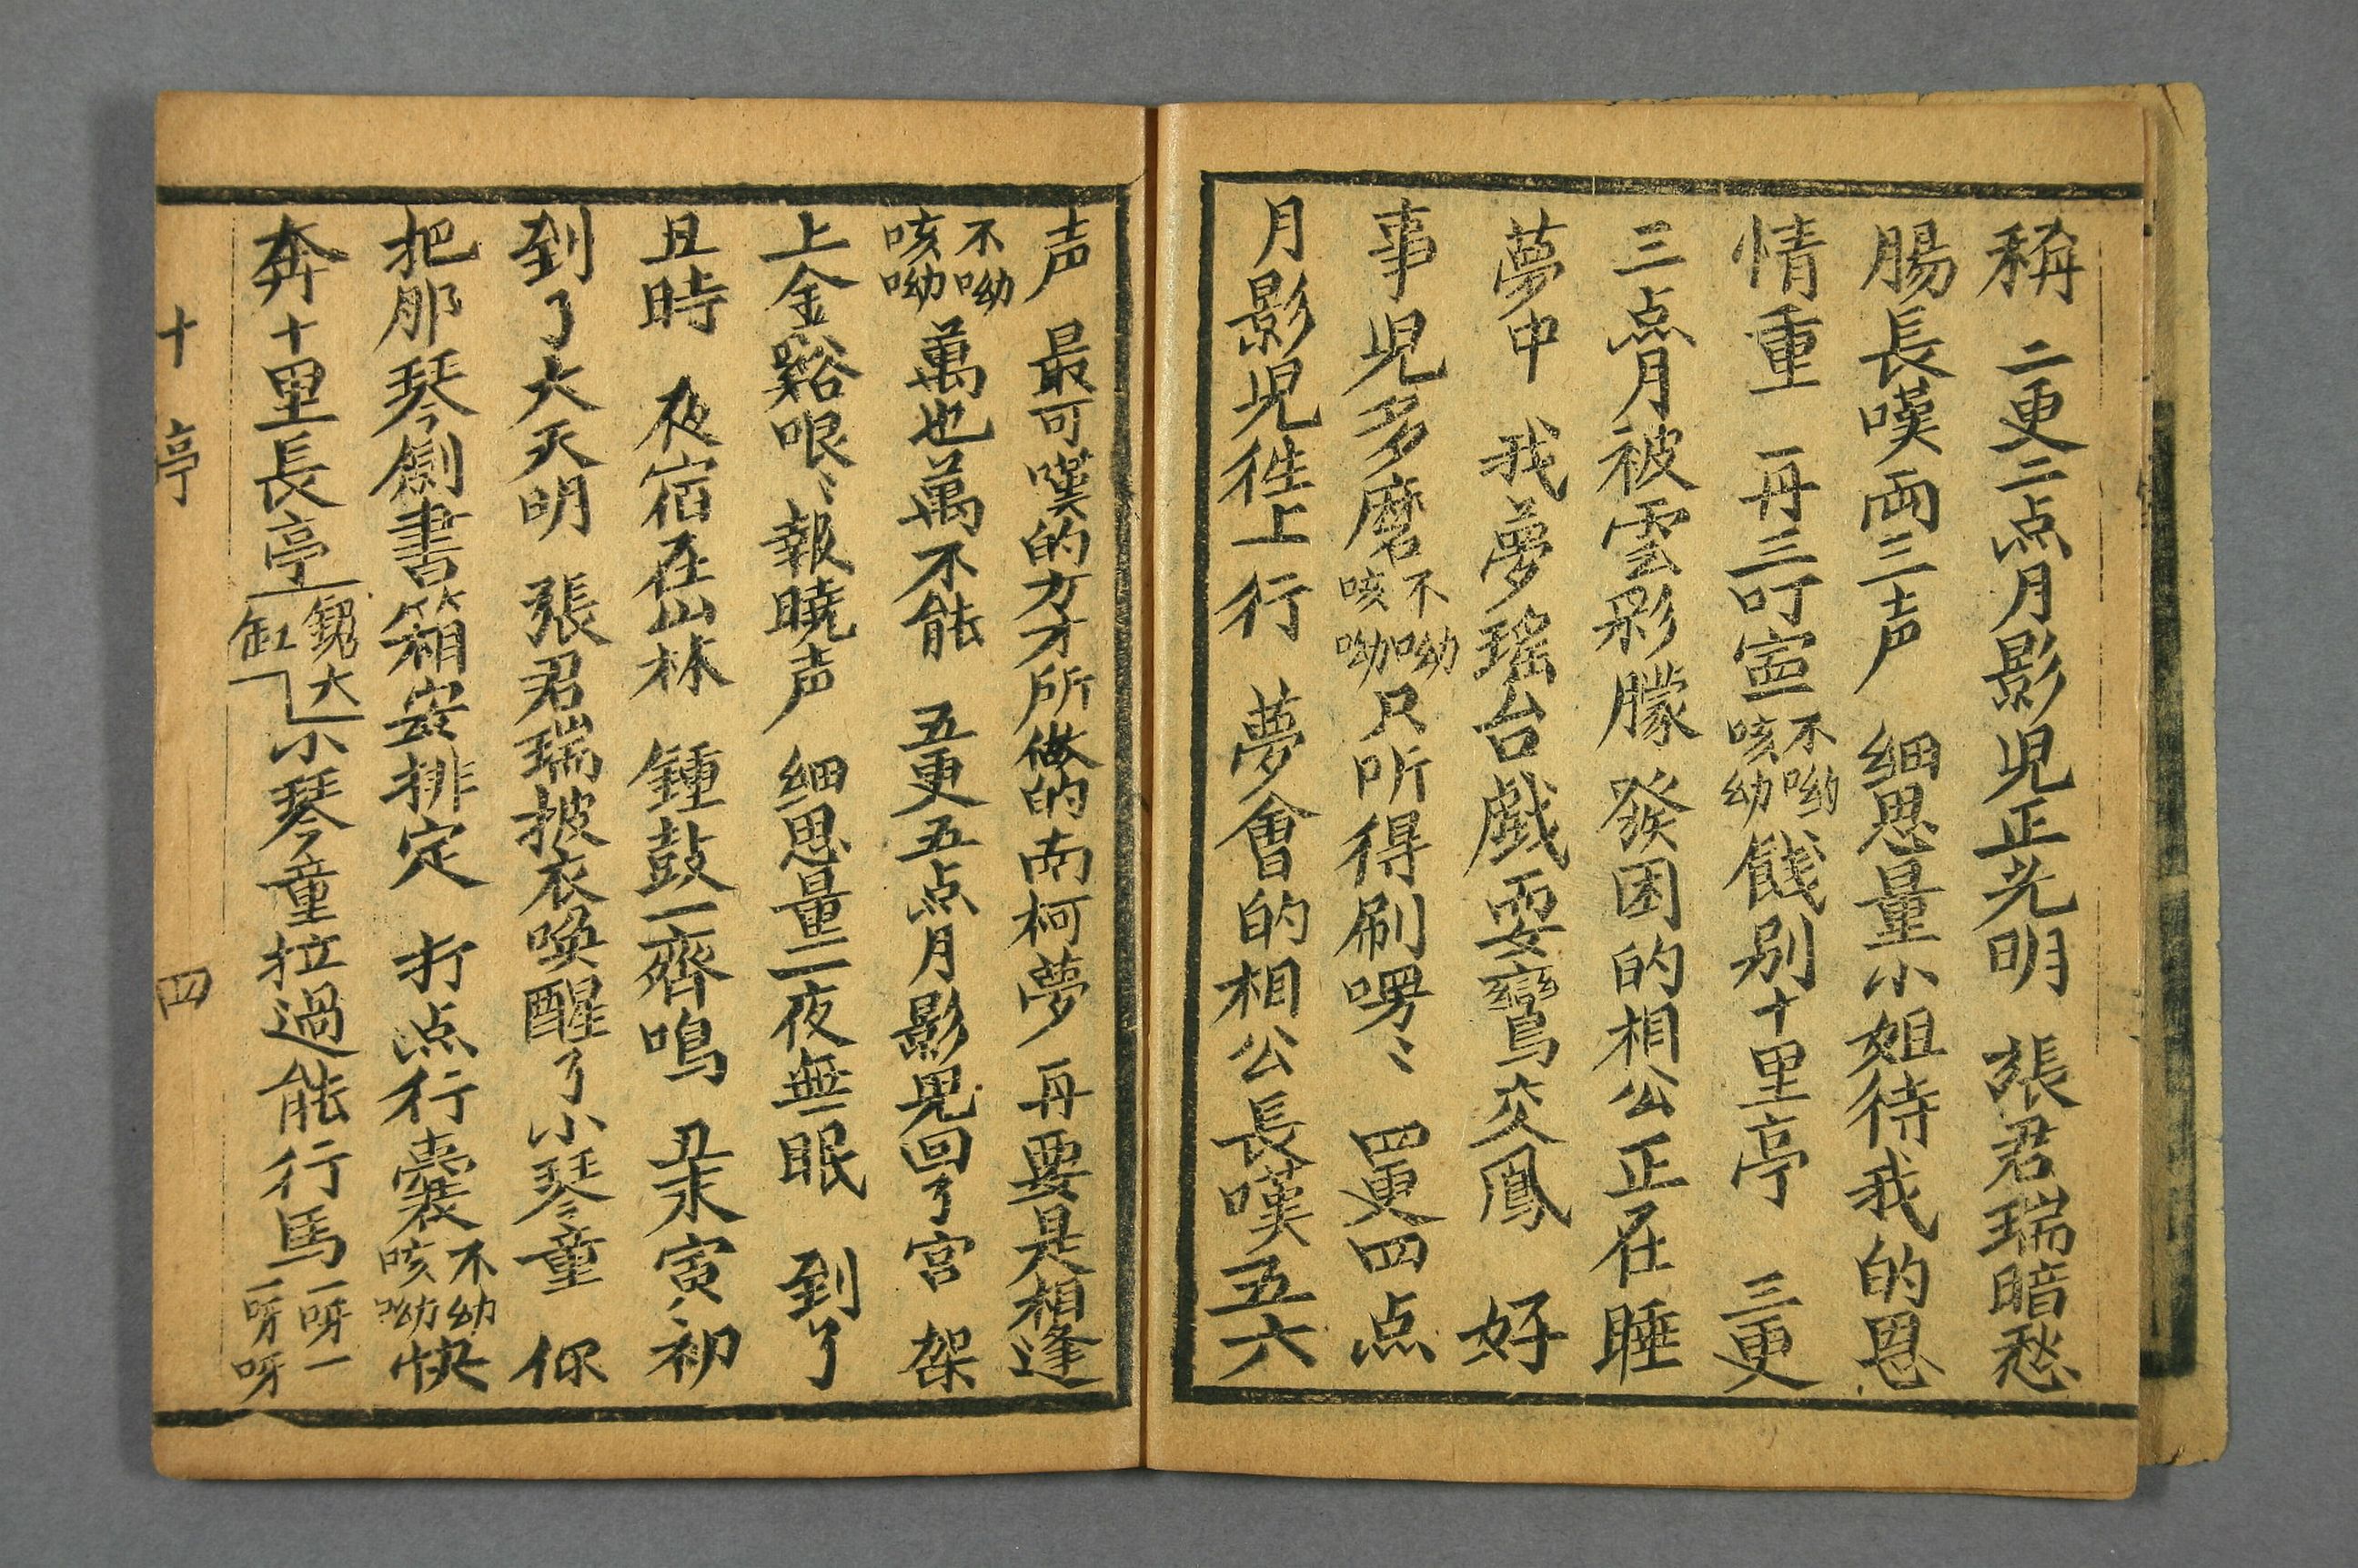 稱 二更二点月影児正光明 張君瑞暗愁
腸長嘆両三声 细思量小姐待我的恩
情重 再三叮寧不呦咳幼餞别十里亭 三更
三点月被雲彩朦 發困的相公正在睡
夢中 我夢瑤台戯耍鸞交鳳 好
事児多磨不呦咳呦只所得刷喓〻 四更四点
月影児徃上行 夢會的相公長嘆五六
声 最可嘆的方才所做的南柯夢 再要是相逢
不呦咳呦萬也萬不能 五更五点月影児回了宫 架
上金鷄哏〻報曉声 细思量一夜無眠 到了
丑時 夜宿在山林 鍾鼓一齊鳴 丑末寅〻初
到了大天明 張君瑞披衣唤醒了小琴童 你
把那琴劍書箱安排定 打点行囊不呦咳呦快
奔十里長亭 大 缸 小琴童拉過能行馬一呀一一呀呀
十 亭 四